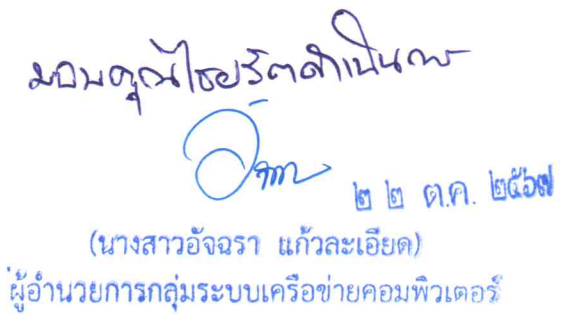 มอบคุณไชยรัตดำเนินการ
๒๒ ต.ค. ๒๕๖๗
(นางสาวอัจฉรา แก้วละเอียด)
ผู้อำนวยการกลุ่มระบบเครือข่ายคอมพิวเตอร์